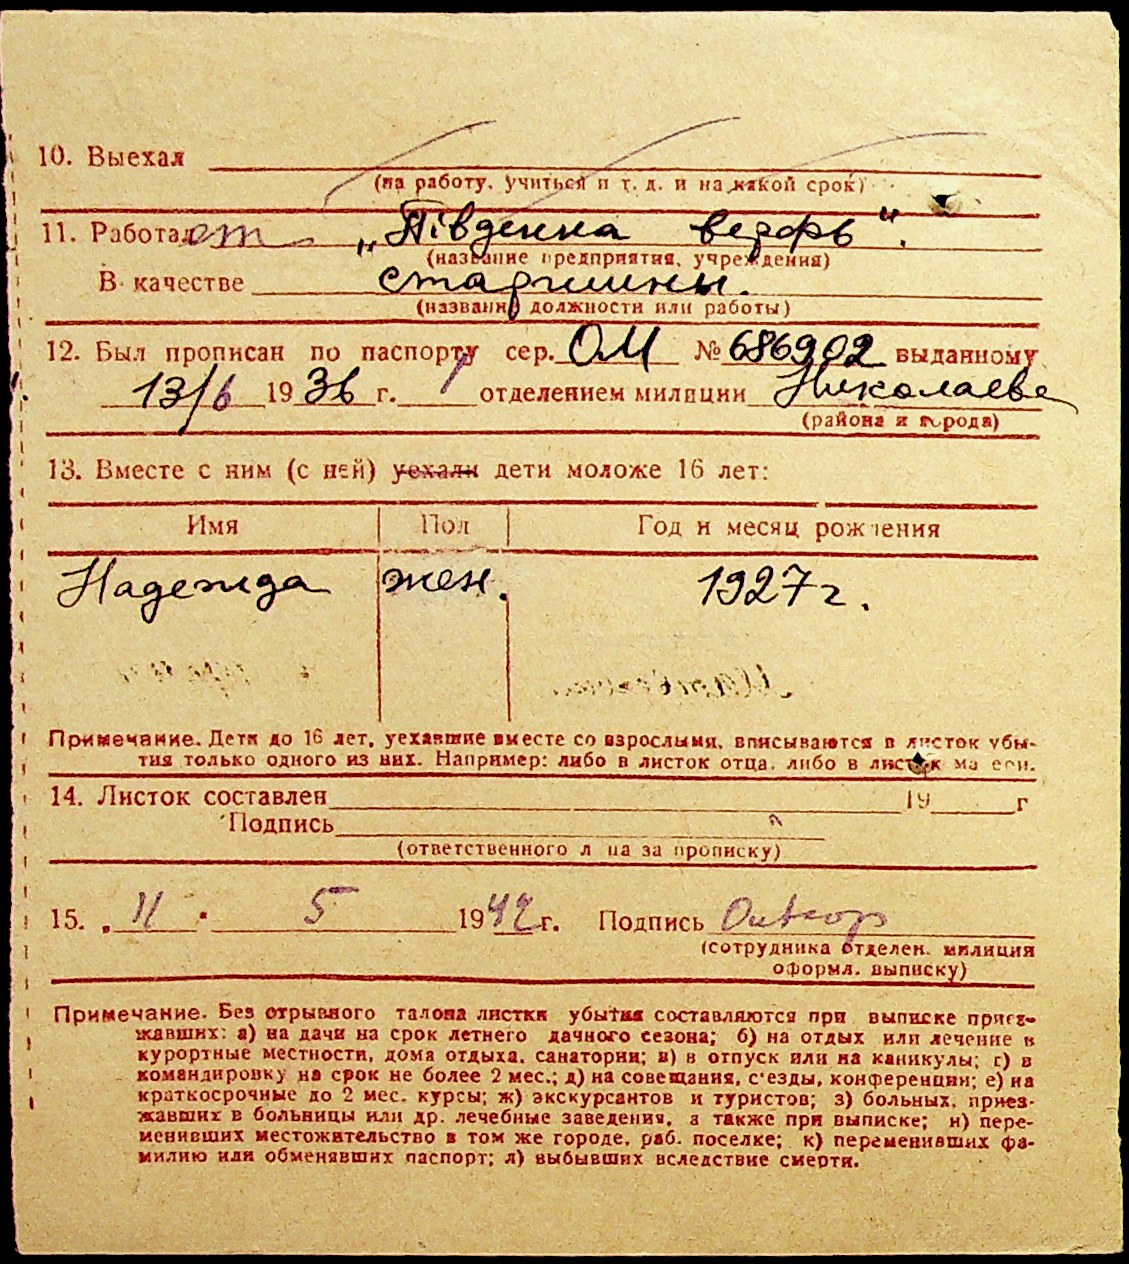 10. Выехал
(на работу, учиться и т. д. и на какой срок)
11. Работает „Південна верфь".
(название предприятия, учреждения)
В качестве старшины.
(название должности или работы)
12. Был прописан по паспорту сер. ОМ № 686902 выданному
13/6 1936 г. 1 отделением милиции Николаеве
(района и города)
13. Вместе с ним (с ней) уехали дети моложе 16 лет:
Имя Пол Год и месяц рождения
Надежда жен. 1927 г.
Примечание. Дети до 16 лет, уехавшие вместе со взрослыми, вписываются в листок убы-
тия только одного из них. Например: либо в листок отца, либо в листок матери.
14. Листок составлен 19 г
Подпись
(ответственного лица за прописку)
15. „11" 5 1942 г. Подпись
(сотрудника отделен. милиции
оформл. выписку)
Примечание. Без отрывного талона листки убытия составляются при выписке приез-
жавших: а) на дачи на срок летнего дачного сезона; б) на отдых или лечение в
курортные местности, дома отдыха, санатории; в) в отпуск или на каникулы; г) в
командировку на срок не более 2 мес.; д) на совещания, с'езды, конференции; е) на
краткосрочные до 2 мес. курсы; ж) экскурсантов и туристов; з) больных, приез-
жавших в больницы или др. лечебные заведения, а также при выписке; и) пере-
менивших местожительство в том же городе, раб. поселке; к) переменивших фа-
милию или обменявших паспорт; л) выбывших вследствие смерти.